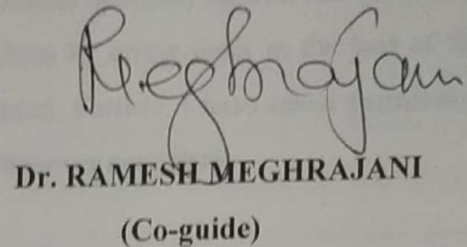 Meghrajani
Dr. RAMESH MEGHRAJANI
(Co-guide)